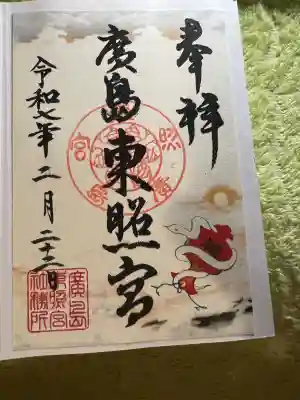 奉拝
廣島東照宮
令和七年二月二十二日
廣島
東照宮
社務所